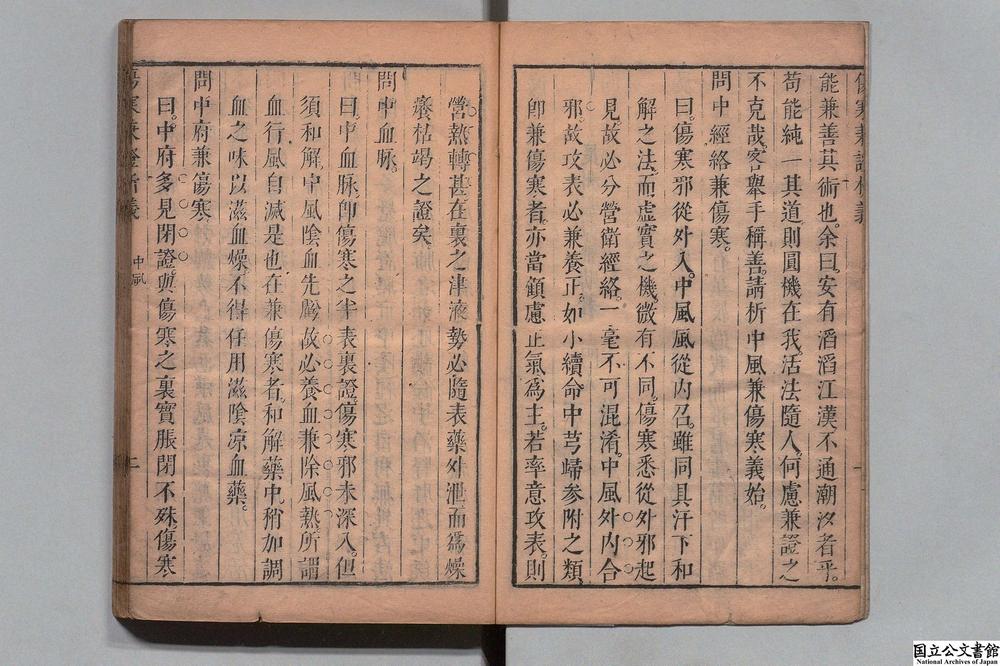 能兼善其術也。余曰。安有滔滔江漢不通潮汐者乎。
苟能純一其道則圓機在我。活法隨人。何慮兼證之
不克哉。客舉手稱善。請析中風兼傷寒義始。
問中經絡兼傷寒。
曰。傷寒邪從外入。中風風從內召。雖同具汗下和
解之法。而虛實之機。微有不同。傷寒悉從外邪起
見。故必分營衛經絡。一毫不可混淆。中風外內合
邪。故攻表必兼養正。如小續命中芎歸參附之類。
卽兼傷寒者。亦當顧慮正氣爲主。若率意攻表。則
營熱轉甚。在裏之津液勢必隨表藥外泄。而爲燥
癢枯竭之證矣。
問中血脉。
曰。中血脉卽傷寒之半表裏證。傷寒邪未深入。但
須和解。中風陰血先虧。故必養血兼除風熱。所謂
血行風自滅是也。在兼傷寒者。和解藥中。稍加調
血之味以滋血燥。不得任用滋陰凉血藥。
問中府兼傷寒。
曰。中府多見閉證。與傷寒之裏實脹閉不殊。傷寒
傷寒兼證析義
中風
二
国立公文書館
National Archives of Japan